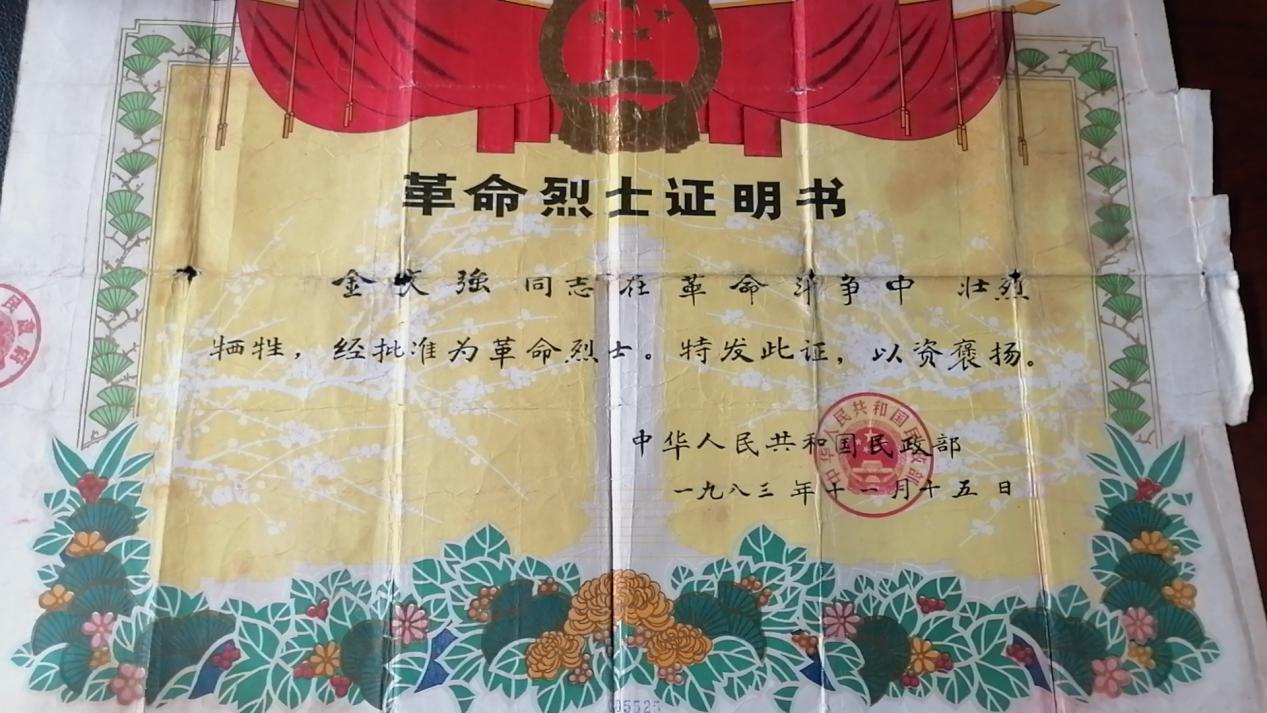 革命烈士证明书
金文强 同志在 革命斗争中 壮烈
牺牲，经批准为革命烈士。特发此证，以资褒扬。
中华人民共和国民政部
一九八三年十一月十五日
中华人民共和国民政部
05525